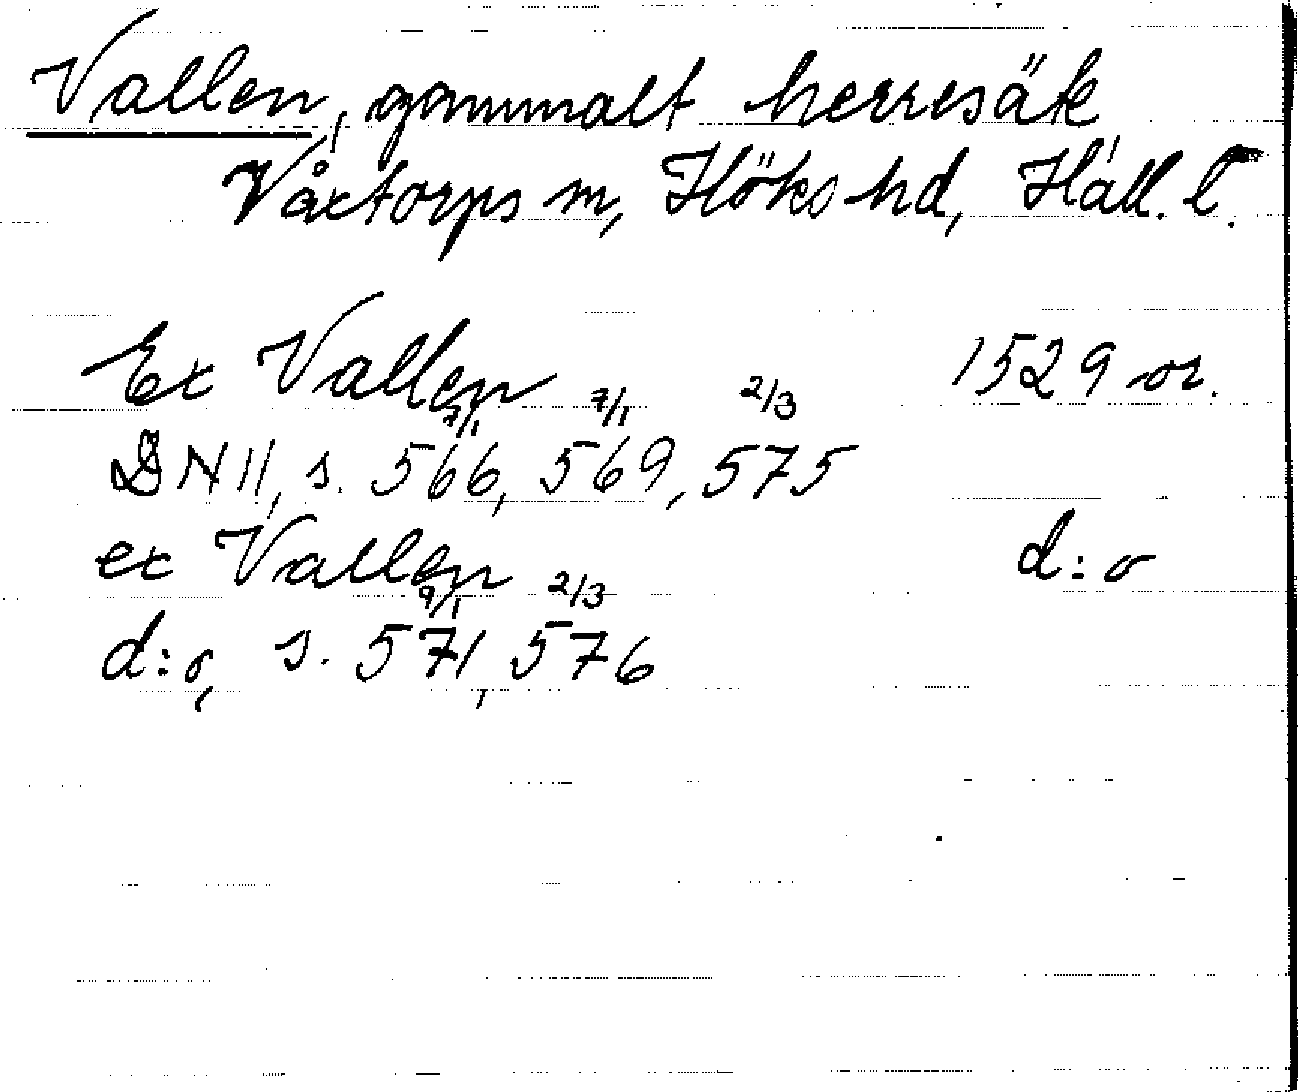 Vallen, gammalt herresäte
Våxtorps sn, Höks hd, Hall. l.
Ex Vallen 1529 or.
7/1 7/1 2/3
DN II, s. 566, 569, 575
ex Vallen d:o
9/1 2/3
d:o, s. 571, 576